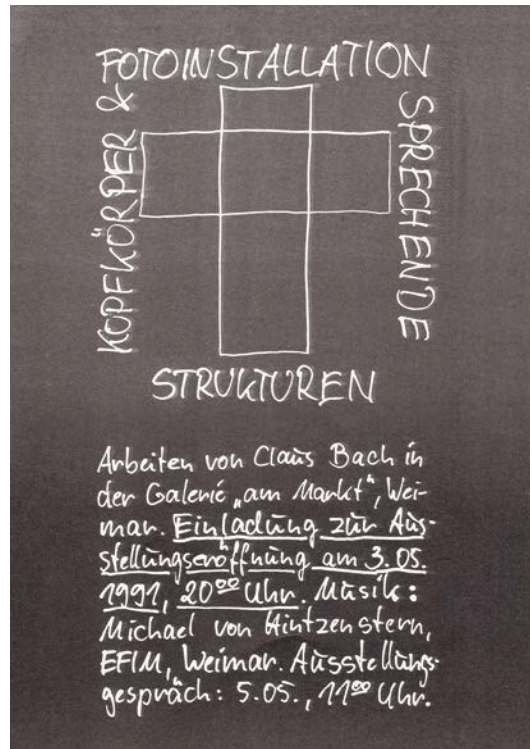 KOPFKÖRPER &
FOTOINSTALLATION
SPRECHENDE
STRUKTUREN
Arbeiten von Claus Bach in
der Galerie „am Markt“, Wei-
mar. Einladung zur Aus-
stellungseröffnung am 3.05.
1991, 20⁰⁰ Uhr. Musik:
Michael von Hintzenstern,
EFIM, Weimar. Ausstellungs-
gespräch: 5.05., 11⁰⁰ Uhr.